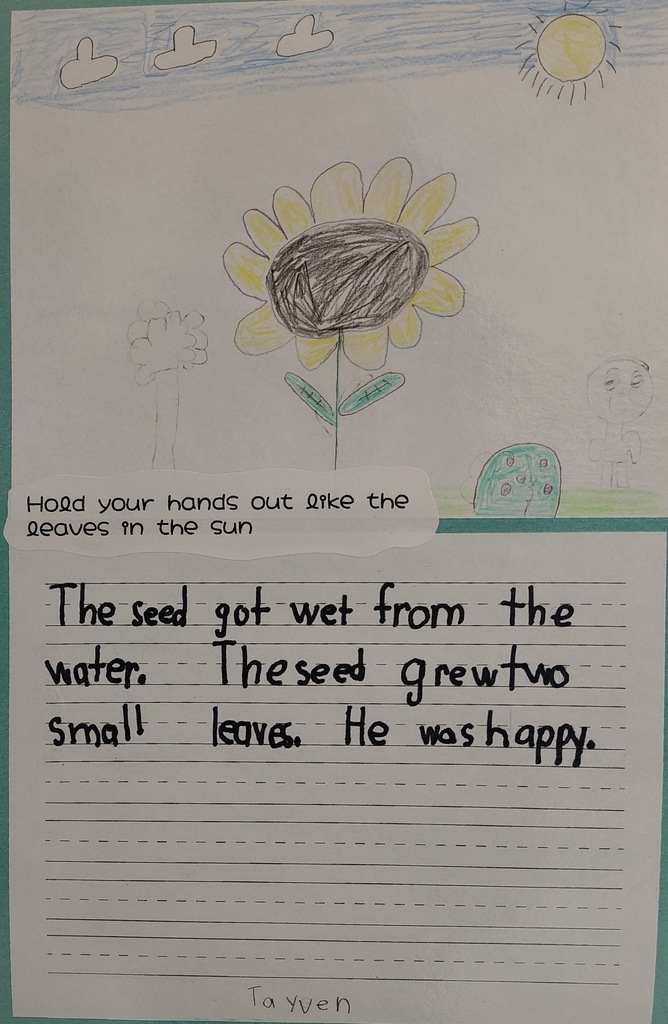 Hold your hands out like the
leaves in the sun
The seed got wet from the
water. The seed grew two
small leaves. He was happy.
Tayven